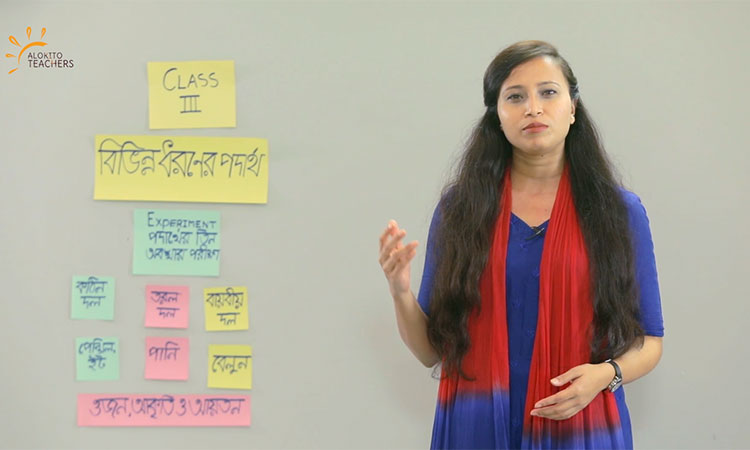 ALOKITO
TEACHERS
CLASS
III
বিভিন্ন ধরনের পদার্থ
EXPERIMENT
পদার্থের তিন
অবস্থার পরীক্ষা
কঠিন
দল
তরল
দল
বায়বীয়
দল
পেন্সিল,
ইট
পানি
বেলুন
ওজন, আকৃতি ও আয়তন